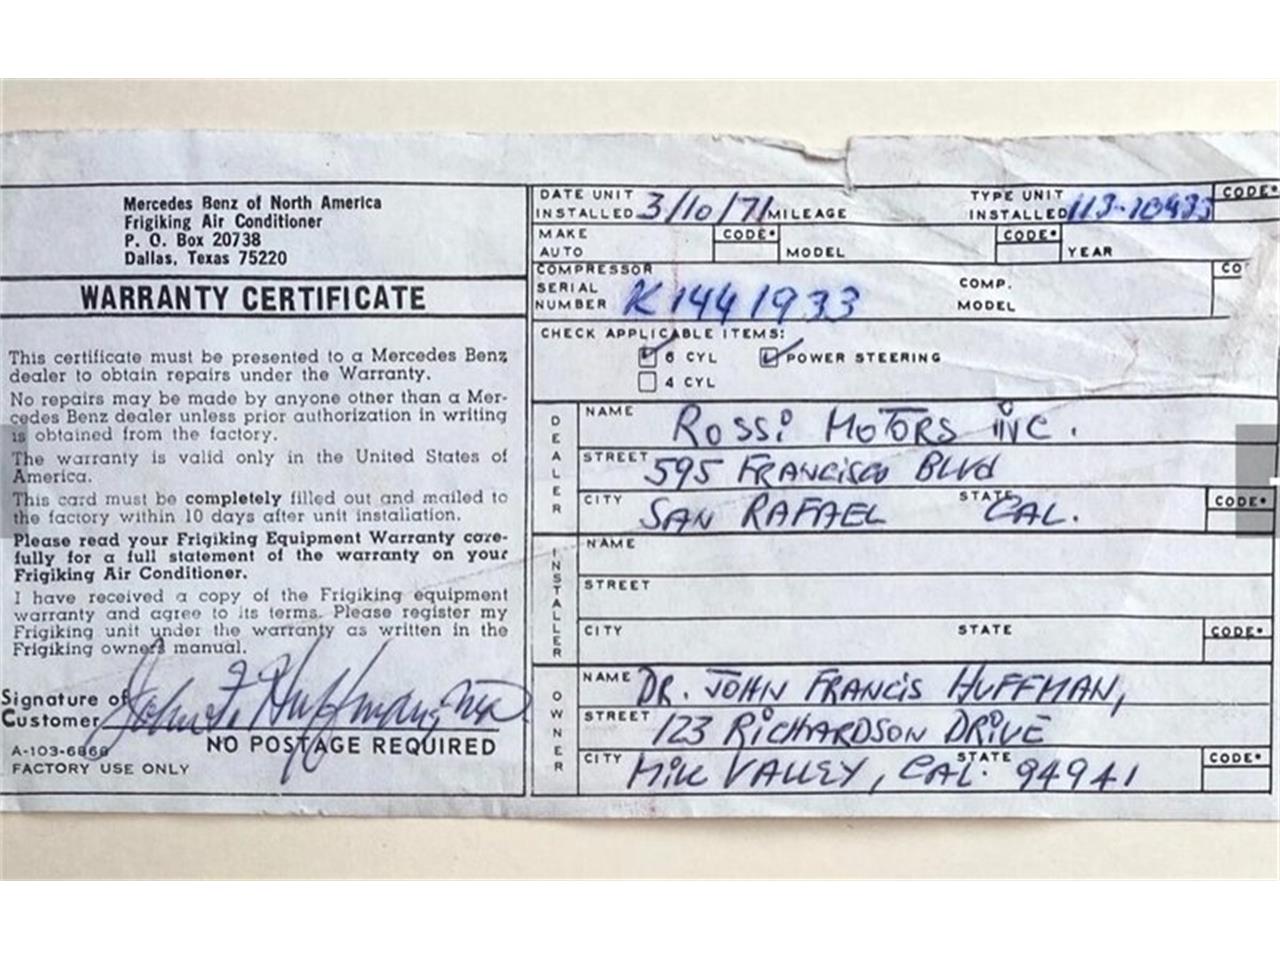 Mercedes Benz of North America
Frigiking Air Conditioner
P. O. Box 20738
Dallas, Texas 75220
WARRANTY CERTIFICATE
This certificate must be presented to a Mercedes Benz
dealer to obtain repairs under the Warranty.
No repairs may be made by anyone other than a Mer-
cedes Benz dealer unless prior authorization in writing
is obtained from the factory.
The warranty is valid only in the United States of
America.
This card must be completely filled out and mailed to
the factory within 10 days after unit installation.
Please read your Frigiking Equipment Warranty care-
fully for a full statement of the warranty on your
Frigiking Air Conditioner.
I have received a copy of the Frigiking equipment
warranty and agree to its terms. Please register my
Frigiking unit under the warranty as written in the
Frigiking owners manual.
Signature of
Customer John F. Huffman, M.D.
NO POSTAGE REQUIRED
A-103-6868
FACTORY USE ONLY
DATE UNIT INSTALLED 3/10/71 MILEAGE TYPE UNIT INSTALLED CODE•
MAKE AUTO CODE• MODEL CODE• YEAR
COMPRESSOR SERIAL NUMBER K1441933 COMP. MODEL CO
CHECK APPLICABLE ITEMS:
6 CYL POWER STEERING
4 CYL
DEALER
NAME ROSSi MOTORS iNC.
STREET 595 FRANCISCO BLVd
CITY SAN RAFAEL STATE CAL. CODE•
INSTALLER
NAME
STREET
CITY STATE CODE•
OWNER
NAME DR. JOHN FRANCiS HUFFMAN,
STREET 123 RiCHARDSON DRiVE
CITY MiLL VALLEY, STATE CAL. 94941 CODE•